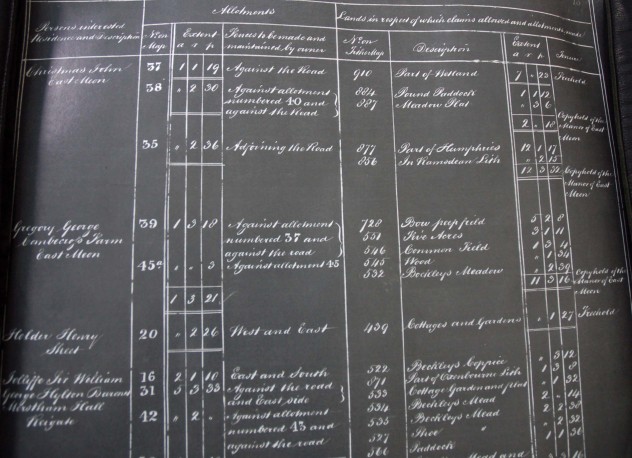 Allotments
Lands in respect of which claims allowed and allotments made
Persons interested
Residence and Description
No. on Map
Extent
a r p
Fences to be made and maintained by owner
No. on Tithe Map
Description
Extent
a r p
Tenure
Christmas John
East Meon
37 1 1 19 Against the Road 910 Part of Hilland 7 " 23 Freehold
38 " 2 30 Against allotment numbered 40 and against the Road 884 Pound Paddock 1 1 12
887 Meadow Plat " 3 6
2 " 18 Copyhold of the Manor of East Meon
35 " 2 36 Adjoining the Road 877 Part of Humphries 12 1 17
856 In Ramsdean Lith " 2 15
12 3 32 Copyhold of the Manor of East Meon
Gregory George
Farm
East Meon
39 1 3 18 Against allotment numbered 37 and against the road 728 field 5 2 8
551 Five Acres 3 1 11
546 Common Field 1 3 4
545 Wood " 1 34
45a " " 3 Against allotment 45 532 Beckleys Meadow " 2 39
11 3 16 Copyhold of the Manor of East Meon
1 3 21
Holder Henry
Street
20 " 2 26 West and East 439 Cottages and Gardens " 1 27 Freehold
Jolliffe Sir William
George Hylton Baronet
Merstham Hall
Reigate
16 2 1 10 East and South 522 Beckleys Coppice " 3 12
31 5 3 33 Against the road and East side 871 Part of Lith 1 3 8
533 Cottage Garden and plat " 1 32
534 Beckleys Mead 2 " 14
42 " 2 " Against allotment numbered 43 and against the road 535 Beckleys Mead 2 2 32
527
566 Paddock
Mead and